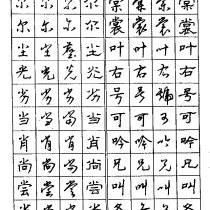 尔 尔 尔 尔 裳 裳 裳 裳
尘 尘 尘 尘 叶 叶 叶 叶
光 光 光 光 右 右 右 右
劣 劣 劣 劣 号 号 号 号
当 当 当 当 可 可 可 可
肖 肖 肖 肖 吟 吟 吟 吟
尚 尚 尚 尚 兄 兄 兄 兄
尝 尝 尝 尝 叫 叫 叫 叫